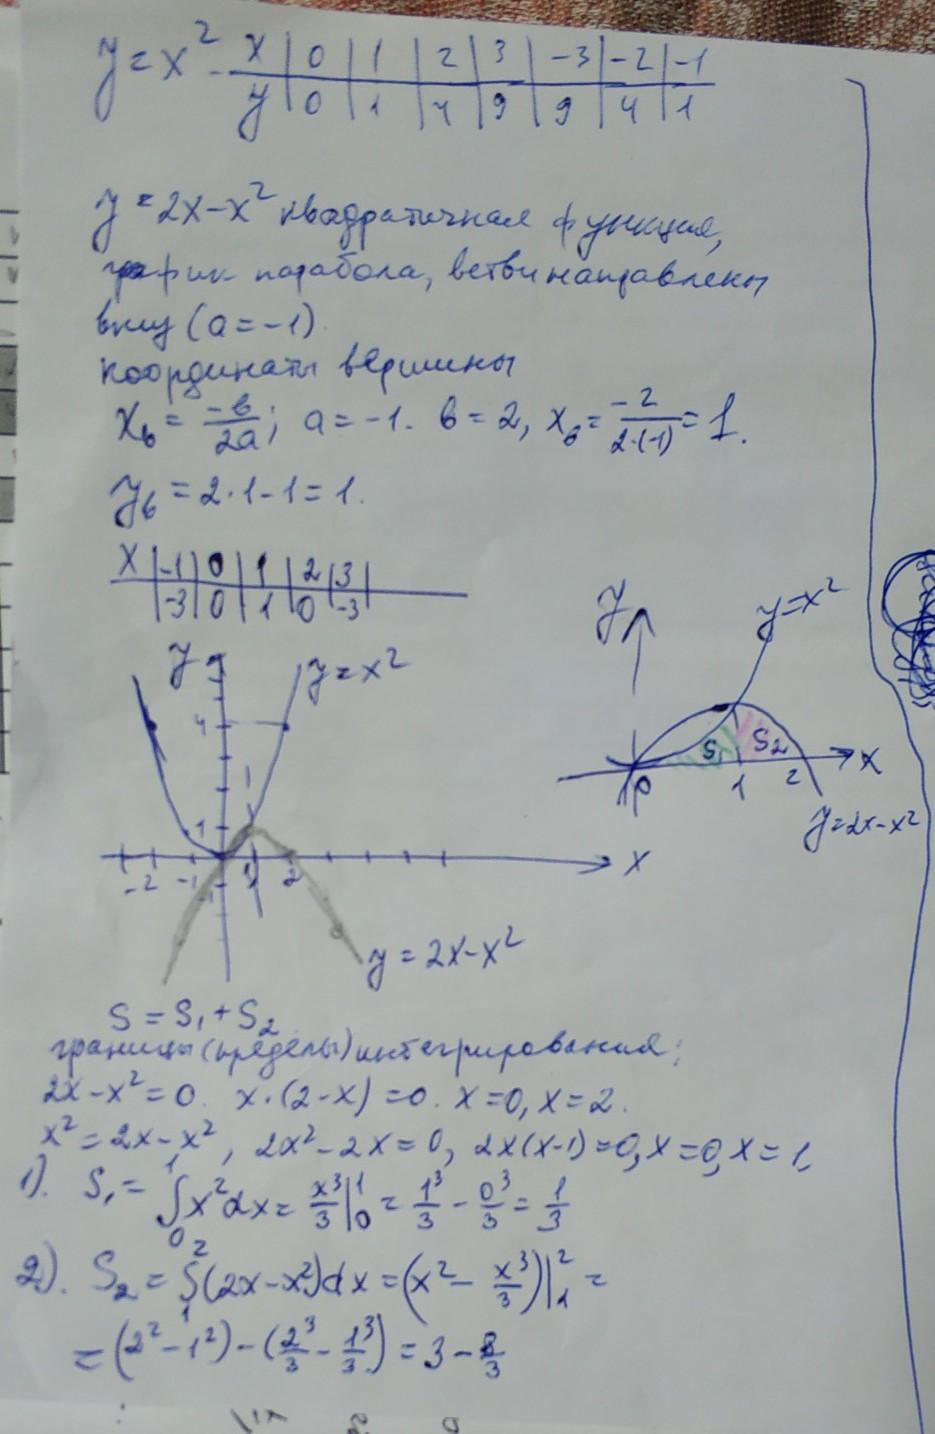 y = x² x | 0 | 1 | 2 | 3 | -3 | -2 | -1
y | 0 | 1 | 4 | 9 | 9 | 4 | 1
y = 2x-x² квадратичная функция,
график парабола, ветви направлены
вниз (a = -1).
координаты вершины
x_в = -в/2a; a = -1. в = 2, x_в = -2/2·(-1) = 1.
y_в = 2·1-1 = 1.
x | -1 | 0 | 1 | 2 | 3 |
| -3 | 0 | 1 | 0 | -3 |
y
y = x²
4
1
-2 -1 1 2 x
-1
y = 2x-x²
y
y=x²
S₁ S₂
0 1 2 x
y=2x-x²
S = S₁ + S₂
границы (пределы) интегрирования:
2x-x² = 0. x·(2-x) = 0. x = 0, x = 2.
x² = 2x-x², 2x²-2x = 0, 2x(x-1) = 0, x = 0, x = 1,
1). S₁ = ∫₀¹ x²dx = x³/3 |₀¹ = 1³/3 - 0³/3 = 1/3
2). S₂ = ∫₁² (2x-x²)dx = (x² - x³/3)|₁² =
= (2²-1²) - (2³/3 - 1³/3) = 3 - 8/3